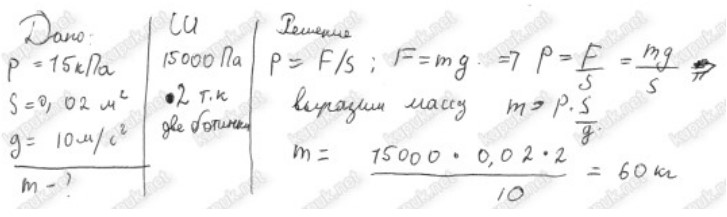 Дано:
P = 15 кПа
S = 0,02 м²
g = 10 м/с²
m - ?
СИ
15000 Па
•2 т.к
две ботинки
Решение
P = F/S ; F = mg ⇒ P = F/S = mg/S ⇒
выразим массу m = P·S/g
m = 15000 · 0,02 · 2 / 10 = 60 кг
kupuk.net